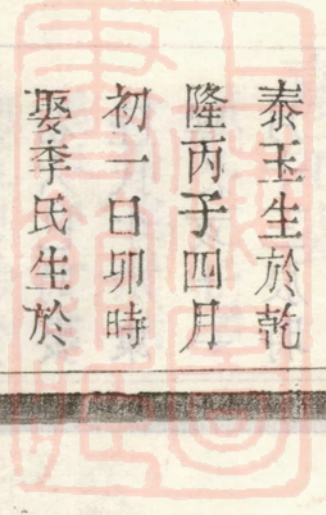 泰玉生於乾
隆丙子四月
初一日卯時
娶李氏生於